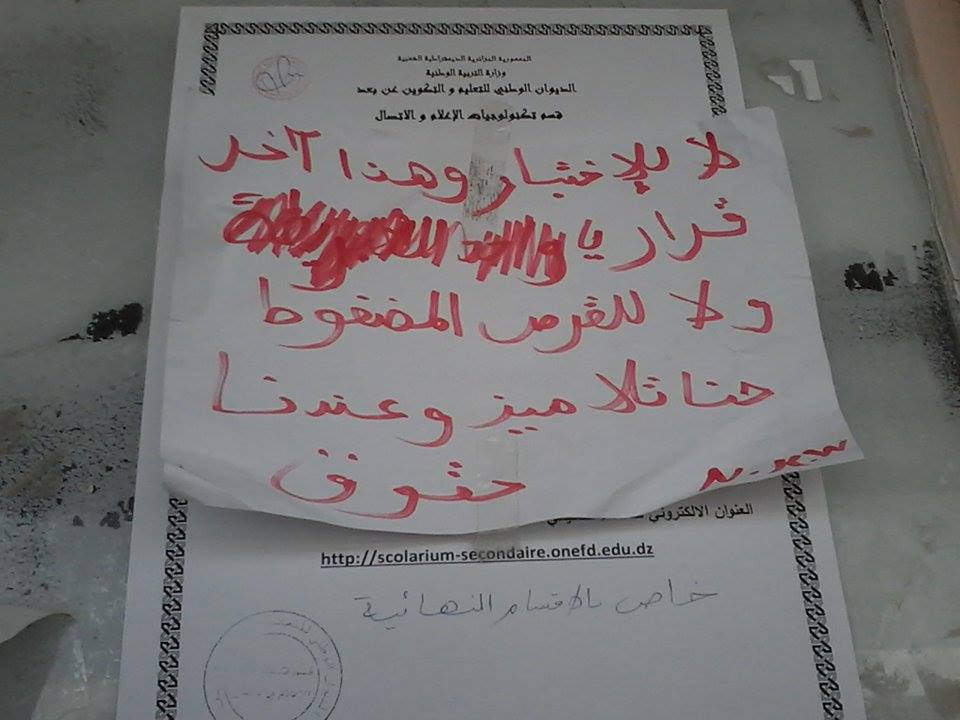 الجمهورية الجزائرية الديمقراطية الشعبية
وزارة التربية الوطنية
الديوان الوطني للتعليم و التكوين عن بعد
قسم تكنولوجيات الإعلام و الاتصال
لا للإختبار وهذا آخر
قرار يا
ولا للقرص المضغوط
حنا تلاميذ وعندنا
حقوق
العنوان الالكتروني
http://scolarium-secondaire.onefd.edu.dz
خاص بالاقسام النهائية